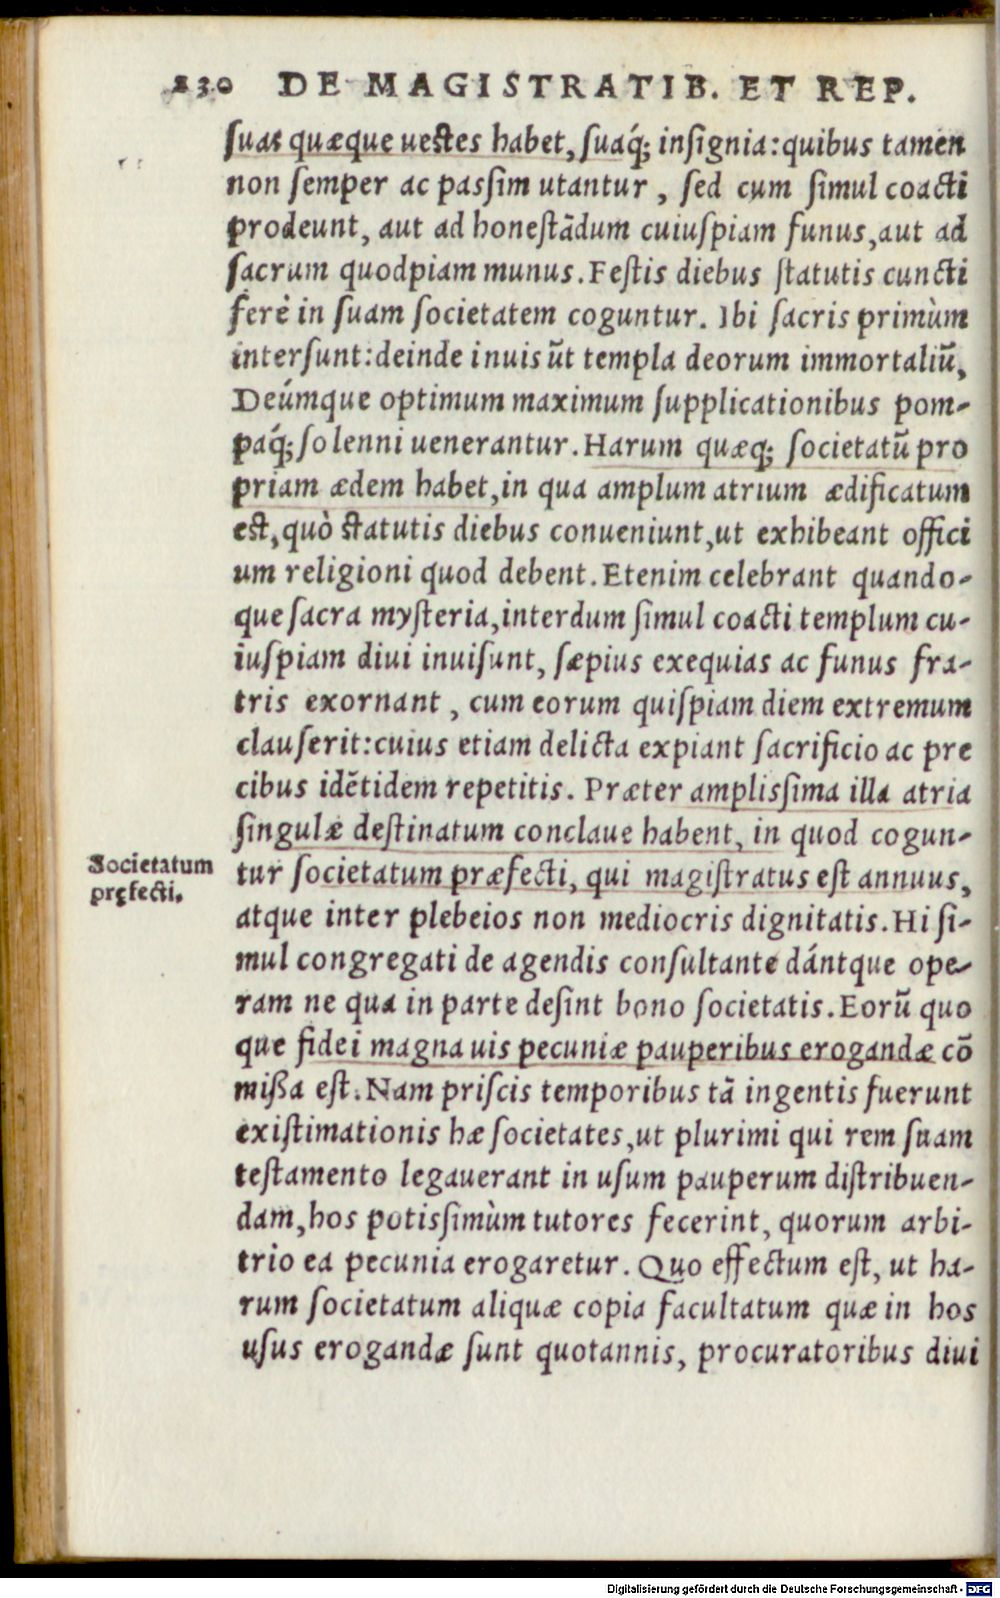 230 DE MAGISTRATIB. ET REP.
suas quæque uestes habet, suaq́; insignia: quibus tamen
non semper ac passim utantur, sed cum simul coacti
prodeunt, aut ad honestãdum cuiuspiam funus, aut ad
sacrum quodpiam munus. Festis diebus statutis cuncti
ferè in suam societatem coguntur. Ibi sacris primùm
intersunt: deinde inuisũt templa deorum immortaliũ,
Deúmque optimum maximum supplicationibus pom-
paq́; solenni uenerantur. Harum quæq; societatũ pro
priam ædem habet, in qua amplum atrium ædificatum
est, quò statutis diebus conueniunt, ut exhibeant offici
um religioni quod debent. Etenim celebrant quando-
que sacra mysteria, interdum simul coacti templum cu-
iuspiam diui inuisunt, sæpius exequias ac funus fra-
tris exornant, cum eorum quispiam diem extremum
clauserit: cuius etiam delicta expiant sacrificio ac pre
cibus idẽtidem repetitis. Præter amplissima illa atria
singulæ destinatum conclaue habent, in quod cogun-
Societatum
pręfecti.
tur societatum præfecti, qui magistratus est annuus,
atque inter plebeios non mediocris dignitatis. Hi si-
mul congregati de agendis consultante dántque ope-
ram ne qua in parte desint bono societatis. Eorũ quo
que fidei magna uis pecuniæ pauperibus erogandæ cõ
missa est. Nam priscis temporibus tã ingentis fuerunt
existimationis hæ societates, ut plurimi qui rem suam
testamento legauerant in usum pauperum distribuen-
dam, hos potissimùm tutores fecerint, quorum arbi-
trio ea pecunia erogaretur. Quo effectum est, ut ha-
rum societatum aliquæ copia facultatum quæ in hos
usus erogandæ sunt quotannis, procuratoribus diui
Digitalisierung gefördert durch die Deutsche Forschungsgemeinschaft - DFG